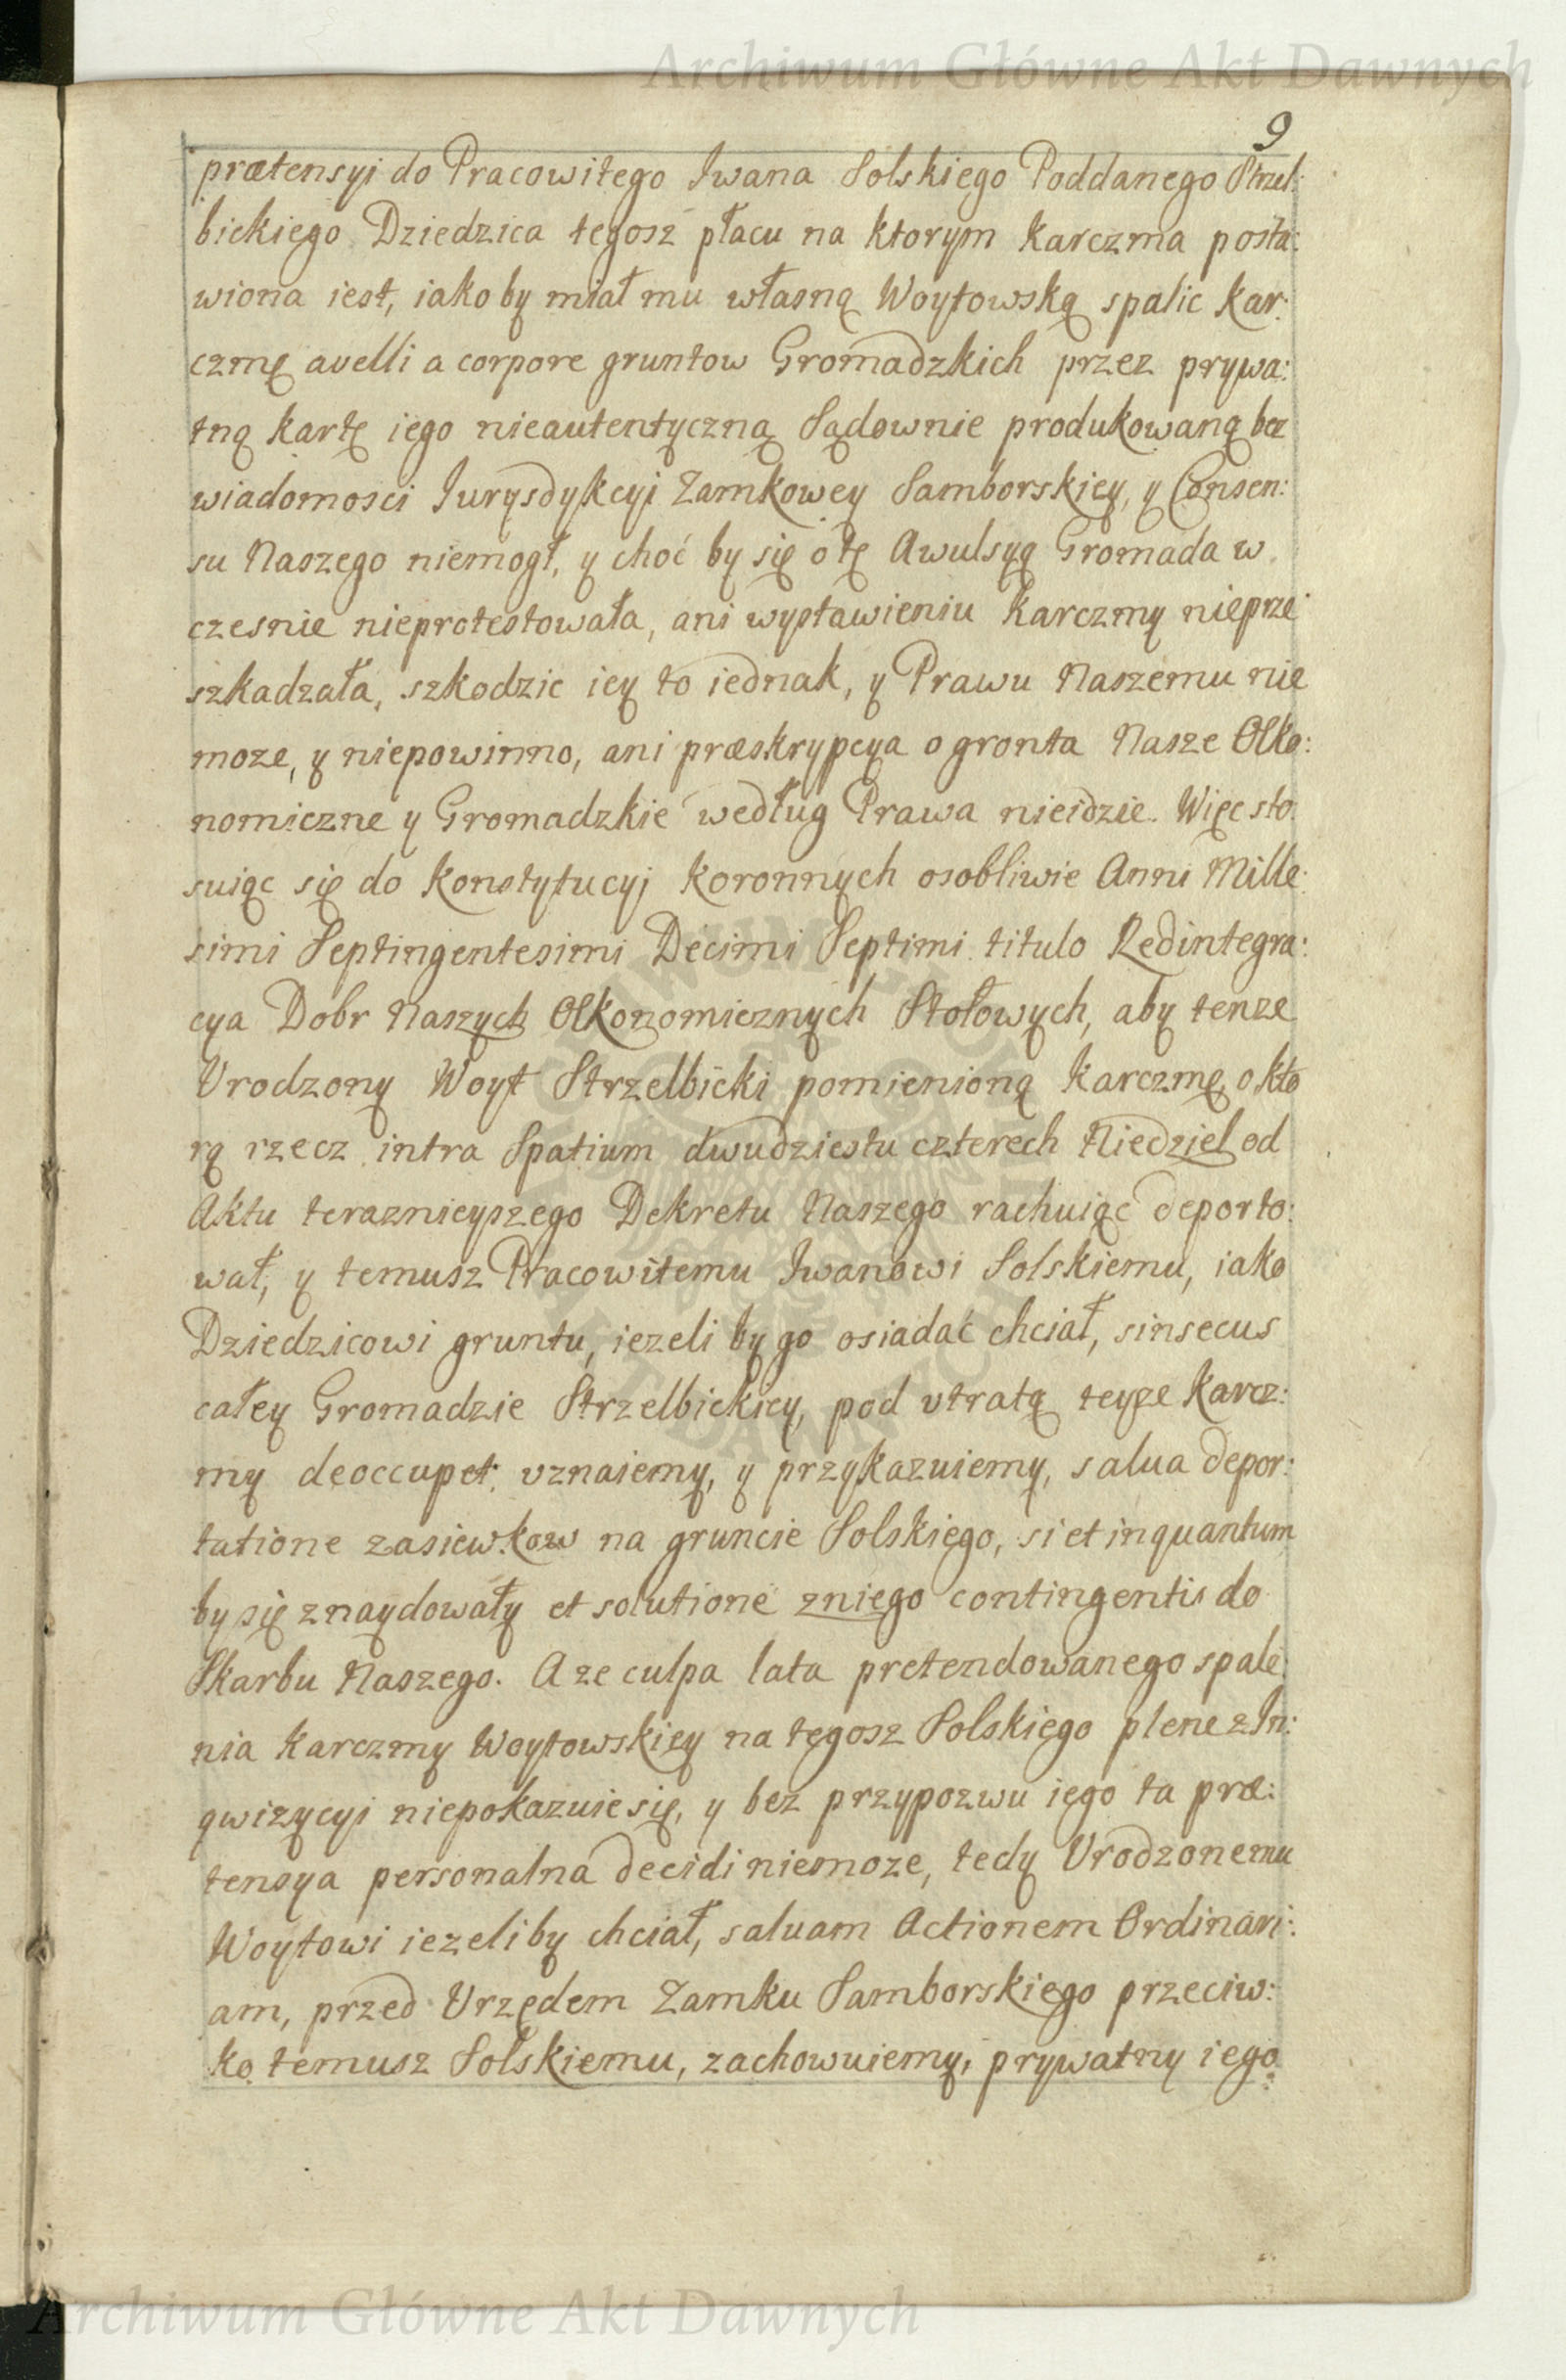 Archiwum Główne Akt Dawnych
9
prætensyi do Pracowitego Iwana Solskiego Poddanego Strzel:
bickiego Dziedzica tegosz płacu na ktorym Karczma posta:
wiona iest, iakoby miał mu własną Woytowską spalic Kar:
czmę avelli a corpore gruntow Gromadzkich przez prywa:
tną kartę iego nieautentyczną Sądownie produkowaną bez
wiadomosci Iurysdykcyi Zamkowey Samborskiey, y Consen:
su Naszego niemogł, y choć by się o tę Awulsyą Gromada w
czesnie nieprotestowała, ani wystawieniu Karczmy nieprze
szkadzała, szkodzic iey to iednak, y Prawu Naszemu nie
moze, y niepowinno, ani præskrypcya o gronta Nasze Œko:
nomiczne y Gromadzkie według Prawa nieidzie. Więc sto:
suiąc się do Konstytucyi Koronnych osobliwie Anni Mille:
simi Septingentesimi Decimi Septimi titulo Redintegra:
cya Dobr Naszych Œkonomicznych Stołowych, aby tenze
Vrodzony Woyt Strzelbicki pomienioną Karczmę o kto
rą rzecz intra Spatium dwudziestu czterech Niedziel od
Aktu teraznieyszego Dekretu Naszego rachuiąc deporto:
wał, y temusz Pracowitemu Iwanowi Solskiemu, iako
Dziedzicowi gruntu, iezeli by go osiadać chciał, sinsecus
całey Gromadzie Strzelbickiey, pod vtratą teyze Karcz:
my deoccupet. vznaiemy, y przykazuiemy, salua depor:
tatione zasiewkow na gruncie Solskiego, si et inquantum
by się znaydowały et solutione zniego contingentis do
Skarbu Naszego. A ze culpa lata pretendowanego spale
nia Karczmy Woytowskiey na tegosz Solskiego plene z In:
qwizycyi niepokazuie się, y bez przypozwu iego ta præ:
tensya personalna decidi niemoze, tedy Vrodzonemu
Woytowi iezeliby chciał, saluam Actionem Ordinari:
am, przed Vrzędem Zamku Samborskiego przeciw:
ko temusz Solskiemu, zachowuiemy, prywatny iego
Archiwum Główne Akt Dawnych